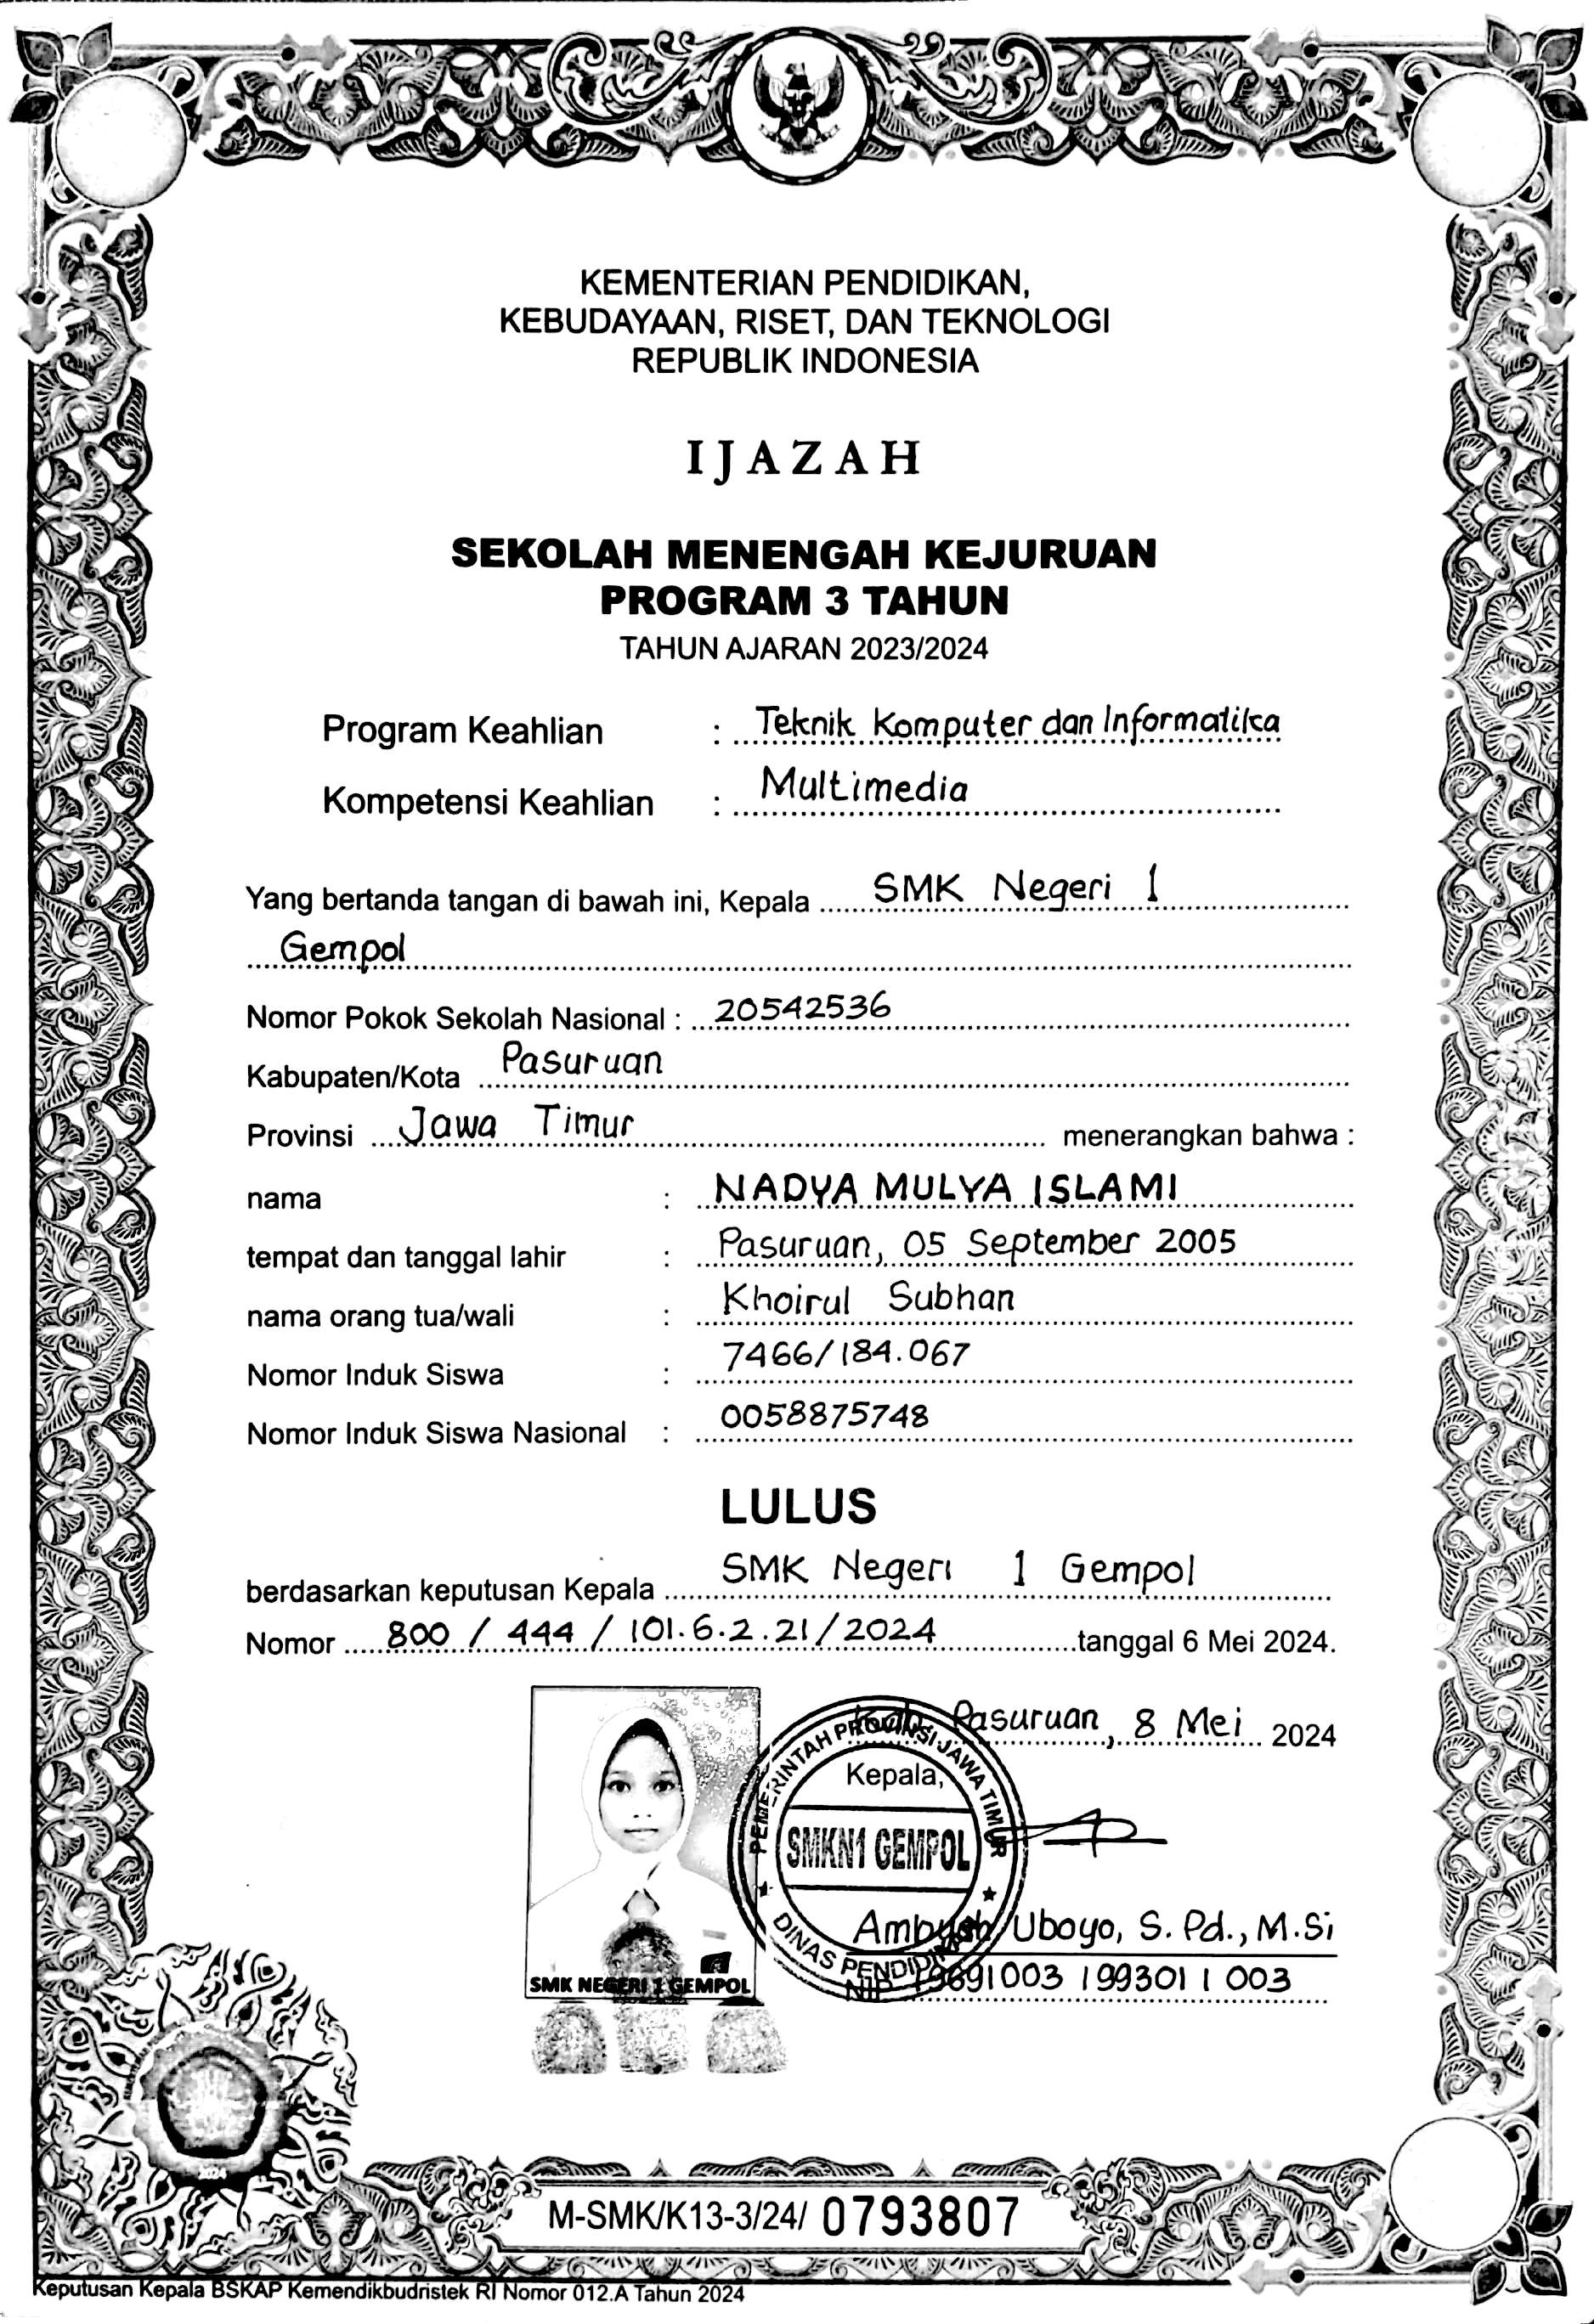 KEMENTERIAN PENDIDIKAN,
KEBUDAYAAN, RISET, DAN TEKNOLOGI
REPUBLIK INDONESIA
IJAZAH
SEKOLAH MENENGAH KEJURUAN
PROGRAM 3 TAHUN
TAHUN AJARAN 2023/2024
Program Keahlian : Teknik Komputer dan Informatika
Kompetensi Keahlian : Multimedia
Yang bertanda tangan di bawah ini, Kepala SMK Negeri 1
Gempol
Nomor Pokok Sekolah Nasional : 20542536
Kabupaten/Kota Pasuruan
Provinsi Jawa Timur menerangkan bahwa :
nama : NADYA MULYA ISLAMI
tempat dan tanggal lahir : Pasuruan, 05 September 2005
nama orang tua/wali : Khoirul Subhan
Nomor Induk Siswa : 7466/184.067
Nomor Induk Siswa Nasional : 0058875748
LULUS
berdasarkan keputusan Kepala SMK Negeri 1 Gempol
Nomor 800 / 444 / 101.6.2.21/2024 tanggal 6 Mei 2024.
Kab. Pasuruan, 8 Mei 2024
Kepala,
PEMERINTAH PROVINSI JAWA TIMUR
SMKN1 GEMPOL
DINAS PENDIDIKAN
Uboyo, S. Pd., M.Si
NIP 19691003 199301 1 003
SMK NEGERI 1 GEMPOL
2024
M-SMK/K13-3/24/ 0793807
Keputusan Kepala BSKAP Kemendikbudristek RI Nomor 012.A Tahun 2024